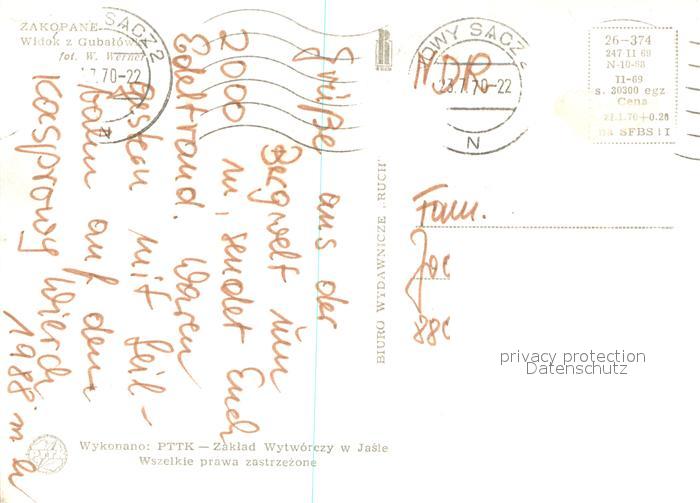 ZAKOPANE
Widok z Gubałówki
fot. W. Werner
SĄCZ 2
.7.70-22
NOWY SĄCZ
23.7.70-22
N
26-374
247-II 69
N-10-68
II-69
s. 30300 egz
Cena
zł 1.70+0.20
na SFBS i I
Grüße aus der
Bergwelt um
2000 m, sendet Euch
Edeltraud. Waren
gestern mit Seil-
bahn auf dem
Kasprowy Wierch
1988 m
NDR
Fam.
BIURO WYDAWNICZE „RUCH"
privacy protection
Datenschutz
Wykonano: PTTK — Zakład Wytwórczy w Jaśle
Wszelkie prawa zastrzeżone